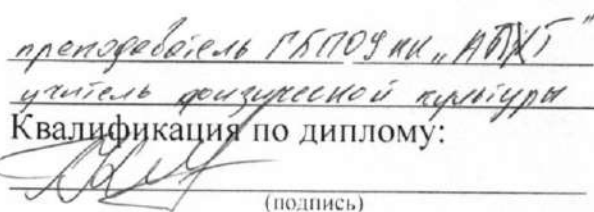 преподаватель ГБПОУ КК „АТ
учитель физической культуры
Квалификация по диплому:
(подпись)